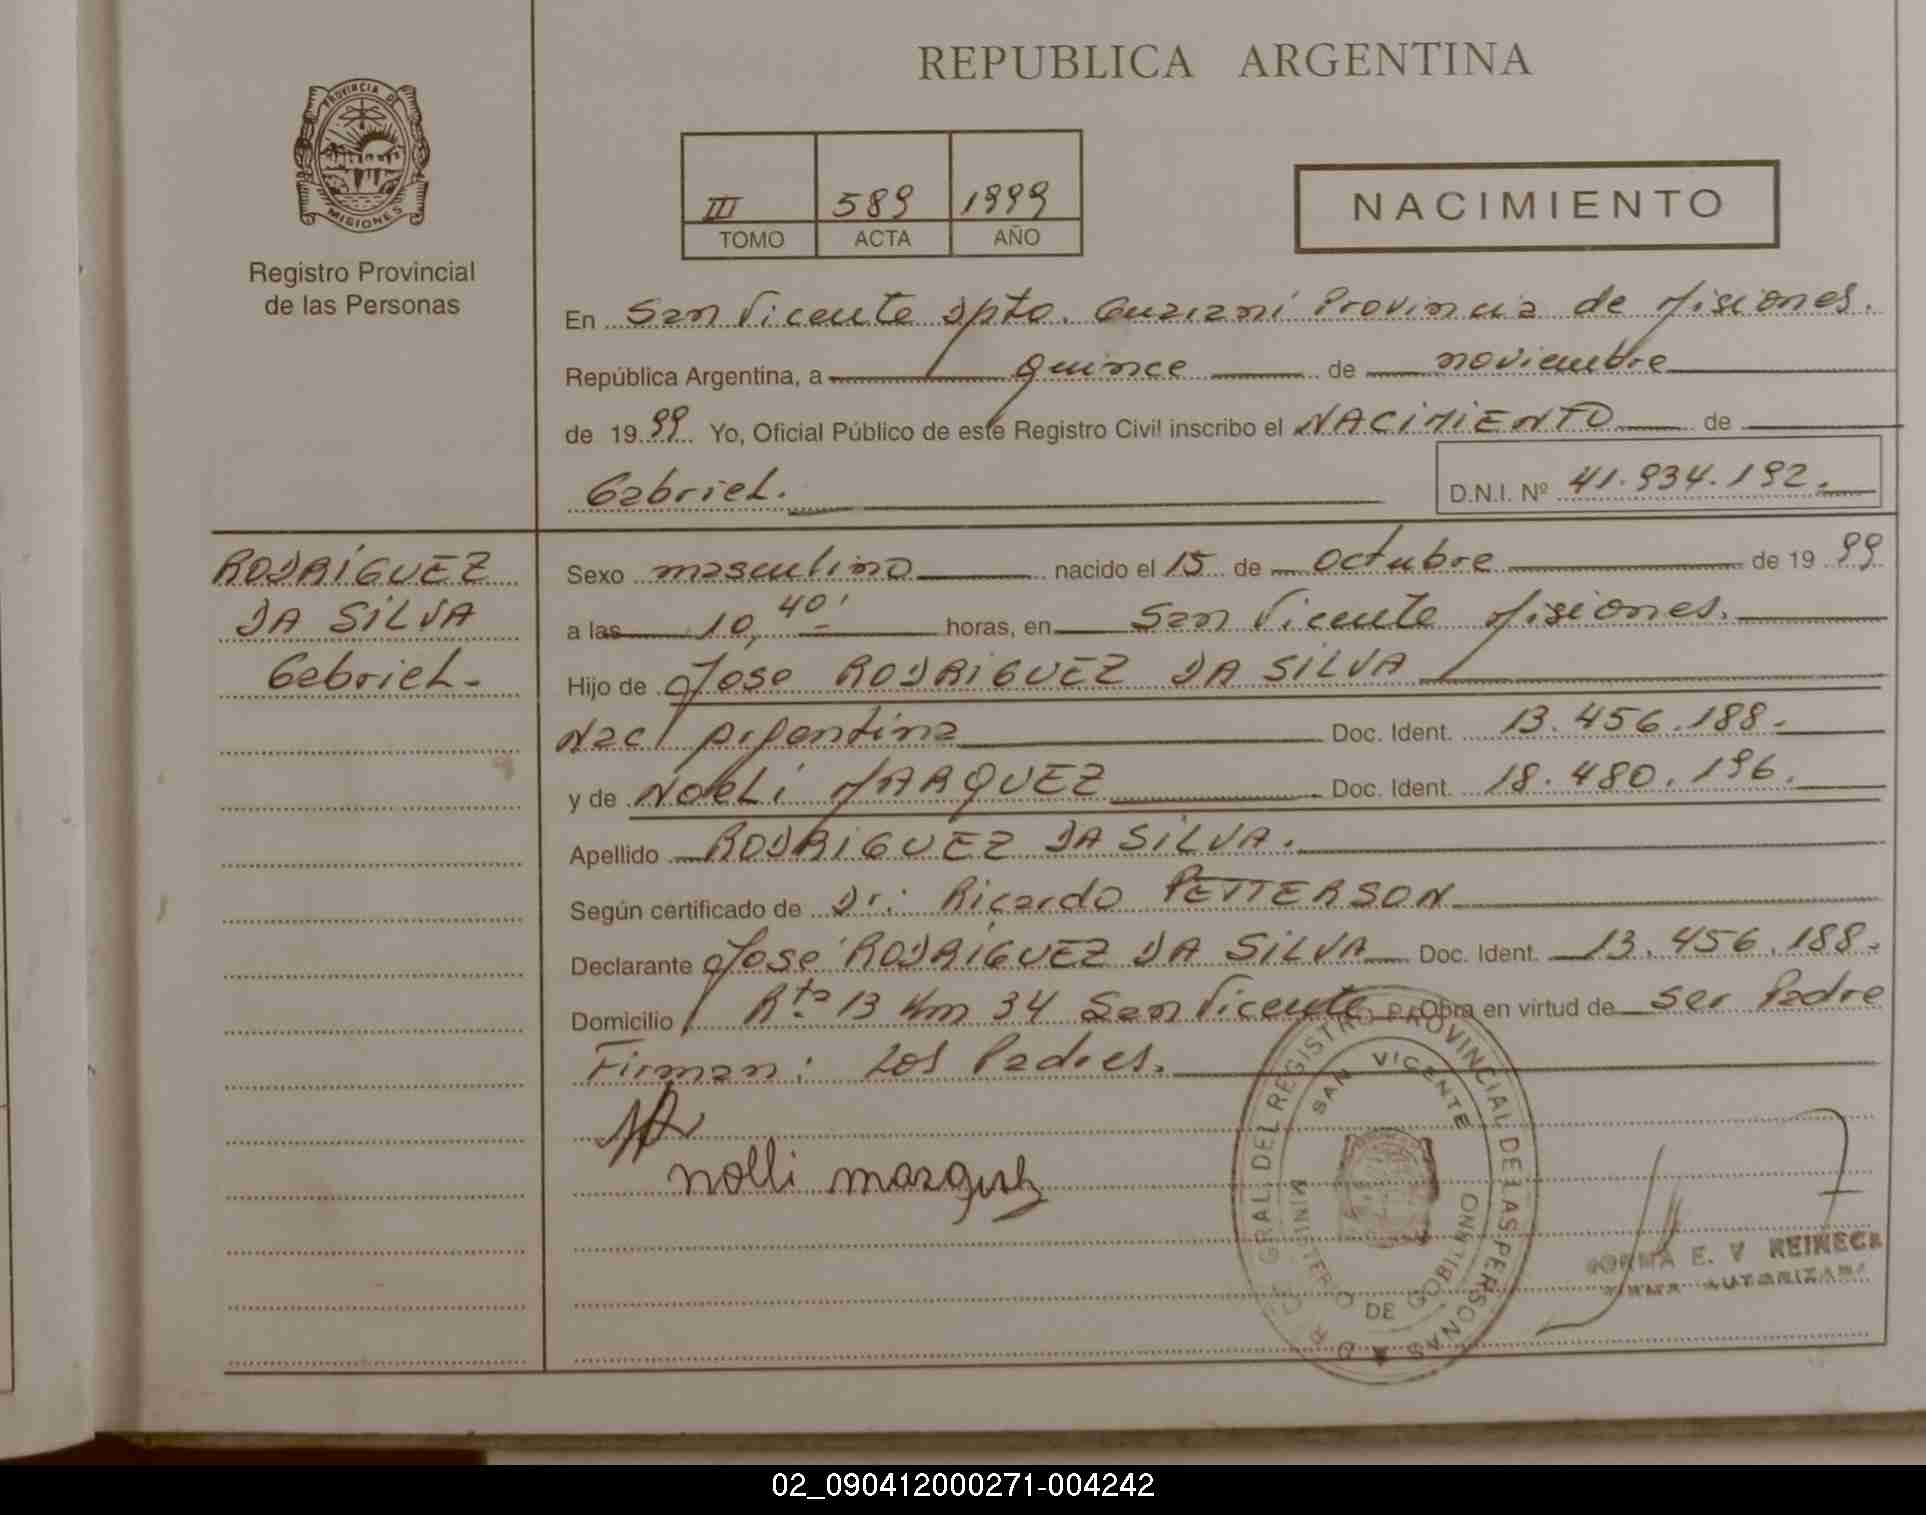 REPUBLICA ARGENTINA
PROVINCIA DE
MISIONES
Registro Provincial
de las Personas
III 589 1999
TOMO ACTA AÑO
NACIMIENTO
En San Vicente Dpto. Guaraní Provincia de Misiones.
República Argentina, a quince de noviembre
de 1999 Yo, Oficial Público de este Registro Civil inscribo el NACIMIENTO de
Gabriel.
D.N.I. Nº 41.934.192.
RODRÍGUEZ
DA SILVA
Gabriel.
Sexo masculino nacido el 15 de octubre de 1999
a las 10,40' horas, en San Vicente Misiones.
Hijo de Jose RODRIGUEZ DA SILVA
Nac. Argentina Doc. Ident. 13.456.188.
y de Noeli MARQUEZ Doc. Ident. 18.480.196.
Apellido RODRIGUEZ DA SILVA.
Según certificado de Dr. Ricardo PETTERSON
Declarante Jose RODRÍGUEZ DA SILVA Doc. Ident. 13.456.188.
Domicilio Rta 13 Km 34 San Vicente Obra en virtud de ser Padre
Firman: Los Padres.
nolli marquez
DIR. GRAL. DEL REGISTRO PROVINCIAL DE LAS PERSONAS
SAN VICENTE
MINISTERIO DE GOBIERNO
NORMA E. V REINECK
FIRMA AUTORIZADA
02_090412000271-004242